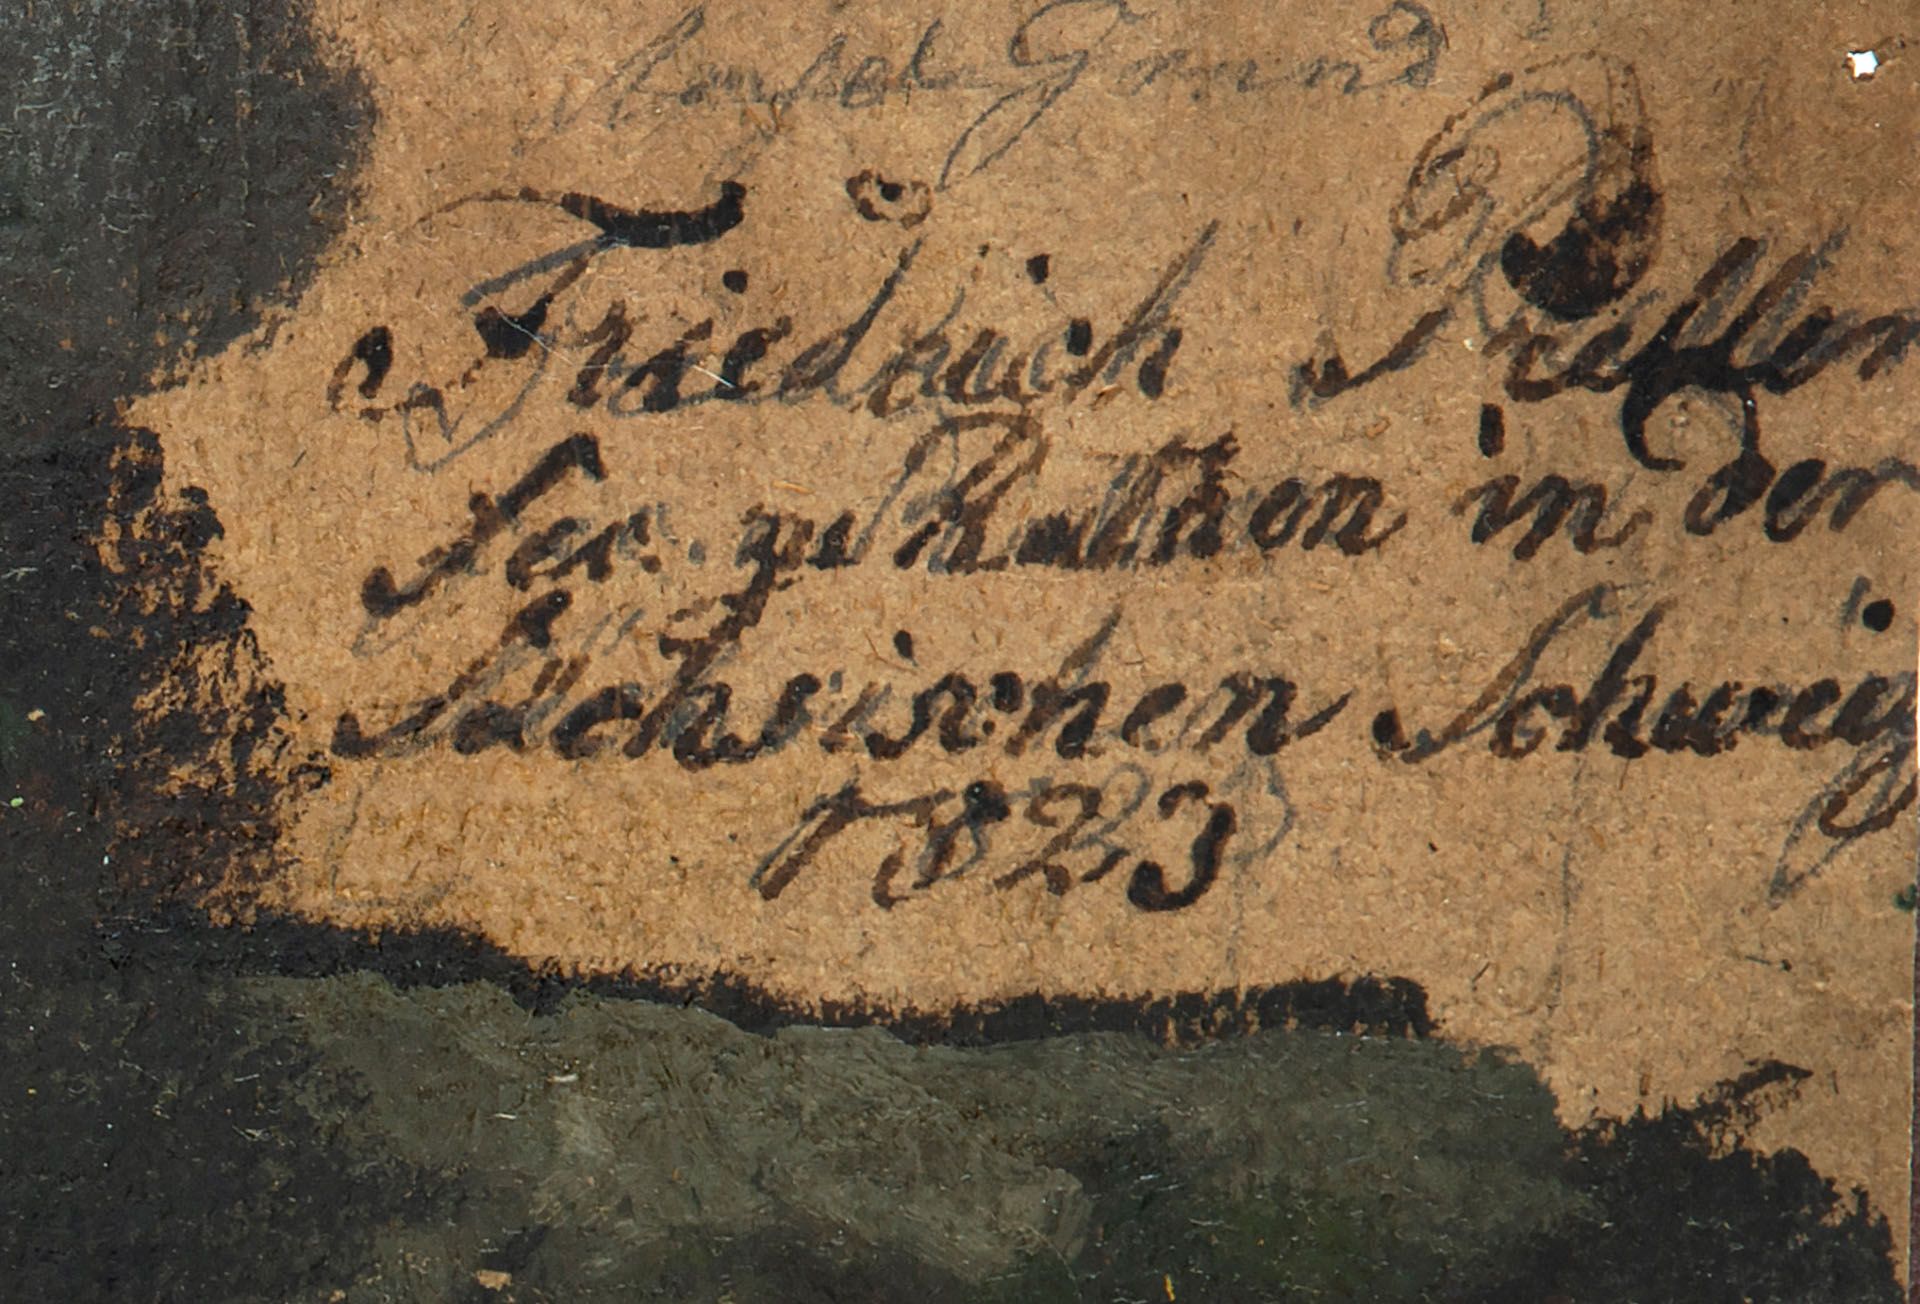 Grund
Friedrich Preller
fec. zu Rathen in der
Sächsischen Schweiz
1823